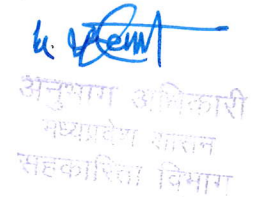 अनुभाग अधिकारी
मध्यप्रदेश शासन
सहकारिता विभाग